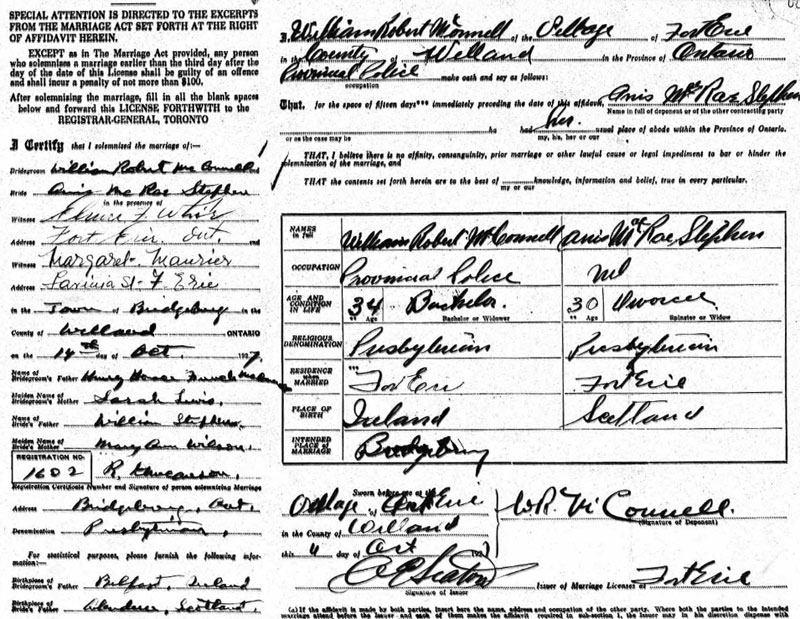 SPECIAL ATTENTION IS DIRECTED TO THE EXCERPTS
FROM THE MARRIAGE ACT SET FORTH AT THE RIGHT
OF AFFIDAVIT HEREIN.
EXCEPT as in The Marriage Act provided, any person
who solemnises a marriage earlier than the third day after
the day of the date of this License shall be guilty of an offence
and shall incur a penalty of not more than $100.
After solemnising the marriage, fill in all the blank spaces
below and forward this LICENSE FORTHWITH to the
REGISTRAR-GENERAL, TORONTO
I Certify that I solemnized the marriage of:
Bridegroom William Robert McConnell
Bride Anis McRae Stephen
in the presence of
Witness White
Address Fort Erie, Ont and
Witness Margaret Maurier
Address Lavinia St. F Erie
in the Town of Bridgeburg in the
County of Welland ONTARIO
on the 14th day of Oct. 1927.
Name of Bridegroom's Father Henry
Maiden Name of Bridegroom's Mother Sarah Lewis
Name of Bride's Father William Stephen
Maiden Name of Bride's Mother Mary Ann Wilson
REGISTRATION NO.
1602 R.
Registration Certificate Number and Signature of person solemnizing Marriage
Address Bridgeburg, Ont.
Denomination Presbyterian
For statistical purposes, please furnish the following infor-
mation:—
Birthplace of Bridegroom's Father Belfast, Ireland
Birthplace of Bride's Father Scotland
I, William Robert McConnell of the Village of Fort Erie
in the County of Welland in the Province of Ontario
Provincial Police make oath and say as follows:
occupation
That, for the space of fifteen days*** immediately preceding the date of this affidavit, Anis McRae Stephen
Name in full of deponent or of the other contracting party
ha had her usual place of abode within the Province of Ontario.
or as the case may be my, his, her or our
THAT, I believe there is no affinity, consanguinity, prior marriage or other lawful cause or legal impediment to bar or hinder the
solemnization of the marriage, and
THAT the contents set forth herein are to the best of knowledge, information and belief, true in every particular.
my or our
NAMES in full William Robert McConnell Anis McRae Stephen
OCCUPATION Provincial Police nil
AGE AND CONDITION IN LIFE 34 Bachelor. 30 Divorcee
Age Bachelor or Widower Age Spinster or Widow
RELIGIOUS DENOMINATION Presbyterian Presbyterian
RESIDENCE when MARRIED Fort Erie Fort Erie
PLACE OF BIRTH Ireland Scotland
INTENDED PLACE OF MARRIAGE Bridgeburg
Sworn before me at the
Village of Fort Erie
in the County of Welland
this 11 day of Oct 192
W.R. McConnell.
(Signature of Deponent)
Seaton Issuer of Marriage Licenses at Fort Erie
Signature of Issuer
(a) If the affidavit is made by both parties, insert here the name, address and occupation of the other party. Where both the parties to the intended
marriage attend before the Issuer and each of them makes the affidavit required in sub-section 1, the Issuer may in his discretion dispense with